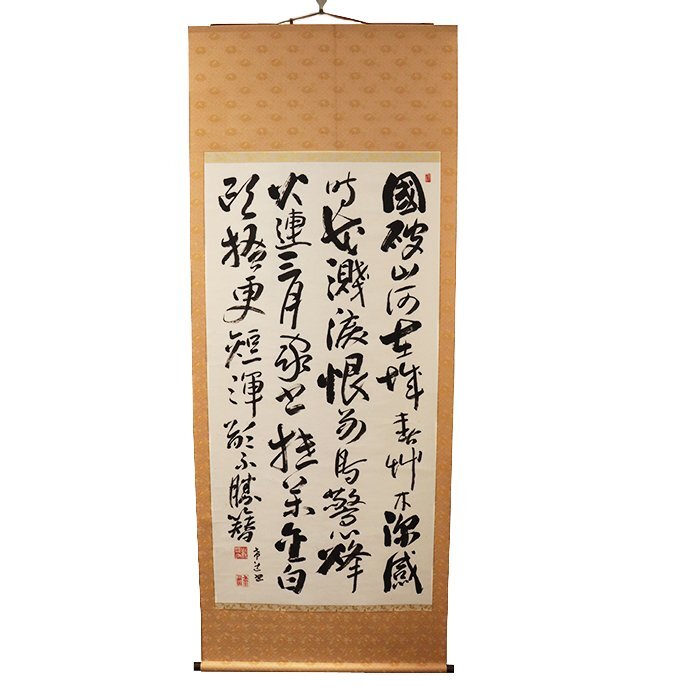 國破山河在城春艸木深感
時花濺涙恨別鳥驚心烽
火連三月家書抵萬金白
頭搔更短渾欲不勝簪